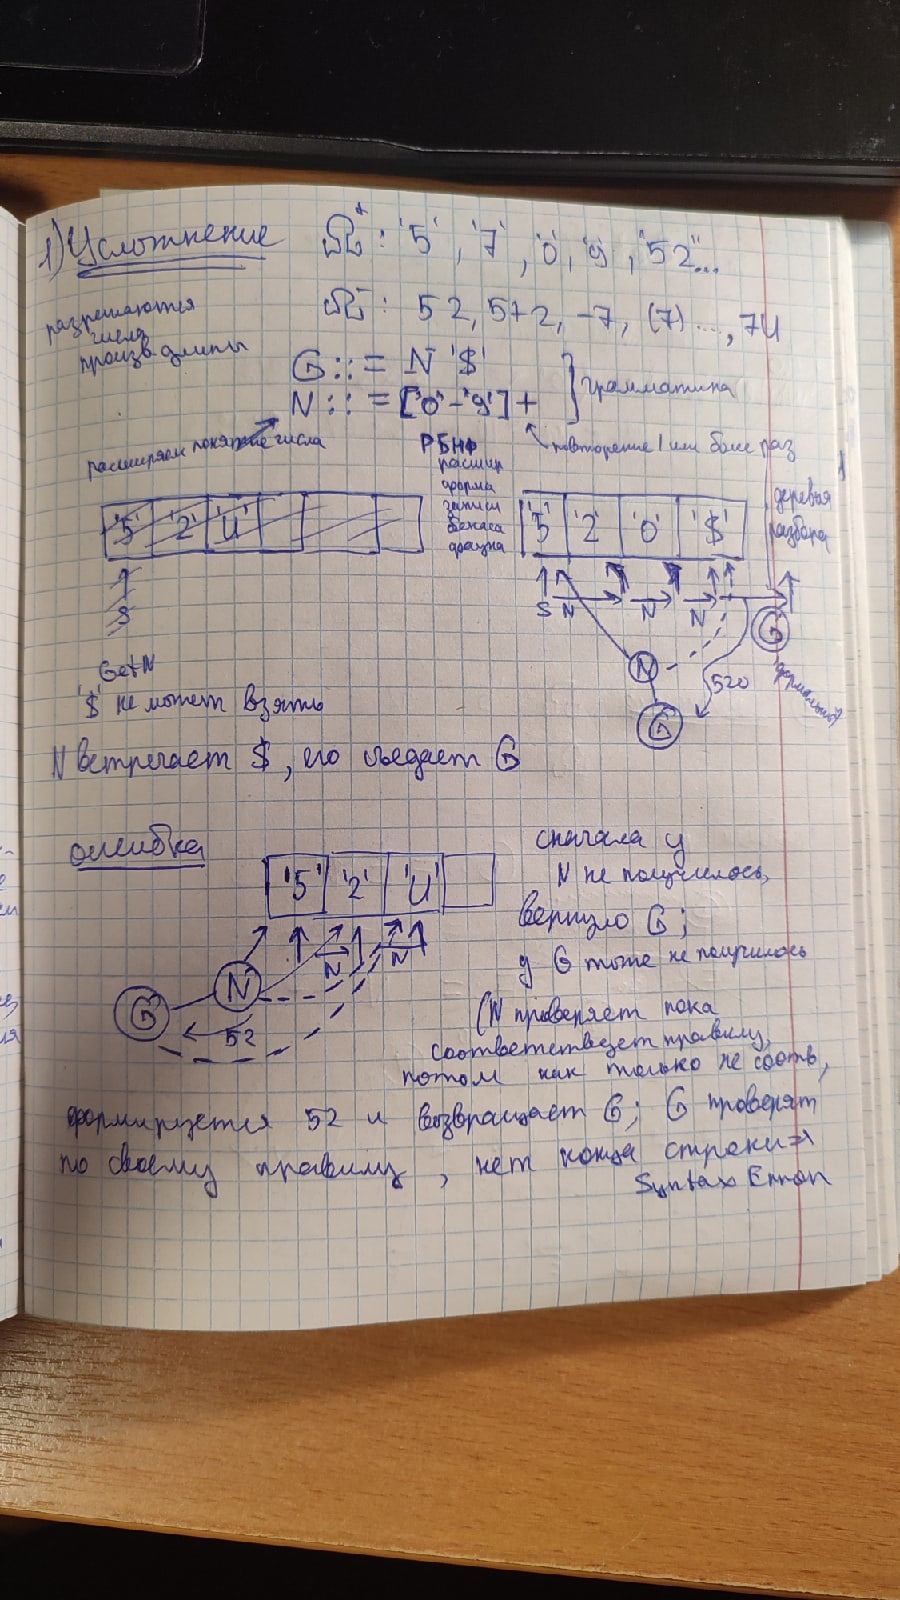 1) Усложнение
Ω⁺: '5', '7', '0', '9', "52"...
разрешаются
числа
произв. длины
Ω⁻: 52, 5+2, -7, (7)..., 7И
G ::= N '$'
N ::= ['0'-'9']+
грамматика
расширяем понятие числа
РБНФ
расшир
форма
записи
бэкуса
повторение 1 или более раз
'5' '2' 'И'
'5' '2' '0' '$'
деревья
разбора
S
S N N N
G
N
520
G
GetN
'$' не может взять
N встречает $, его съедает G
ошибка
'5' '2' 'И'
N N
N
G
52
сначала у
N не получилось,
вернуло G;
у G тоже не получилось
(N проверяет пока
соответствует правилу,
потом как только не соотв,
формируется 52 и возвращает G; G проверят
по своему правилу, нет конца строки =>
Syntax Error